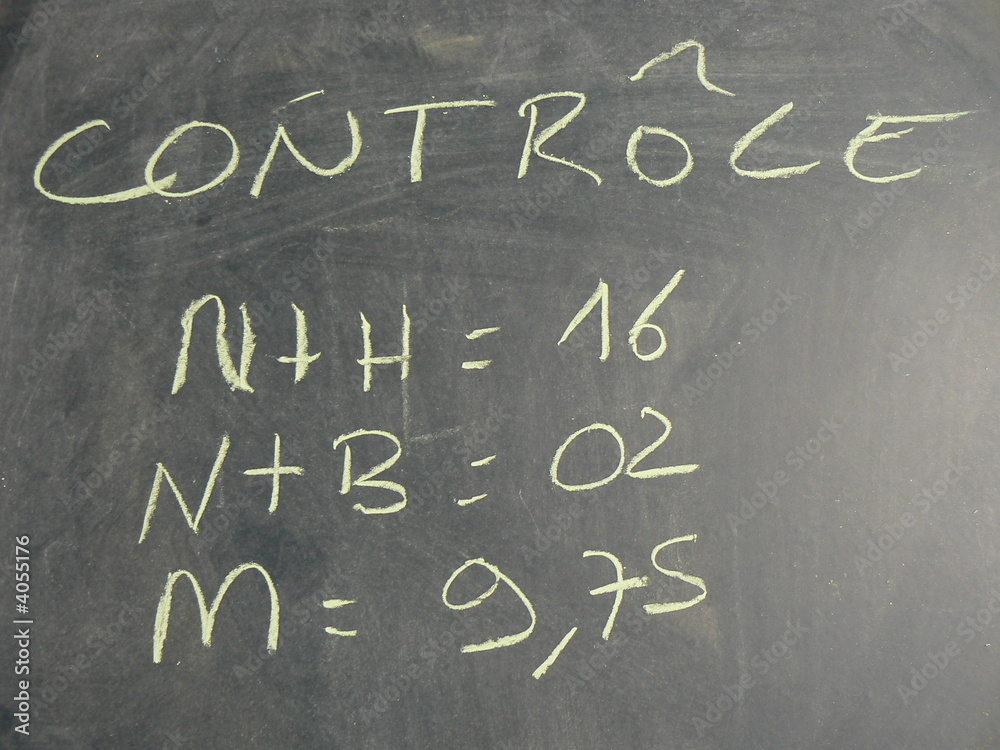 CONTRÔLE
N+H = 16
N+B = 02
M = 9,75
Adobe Stock | #4055176